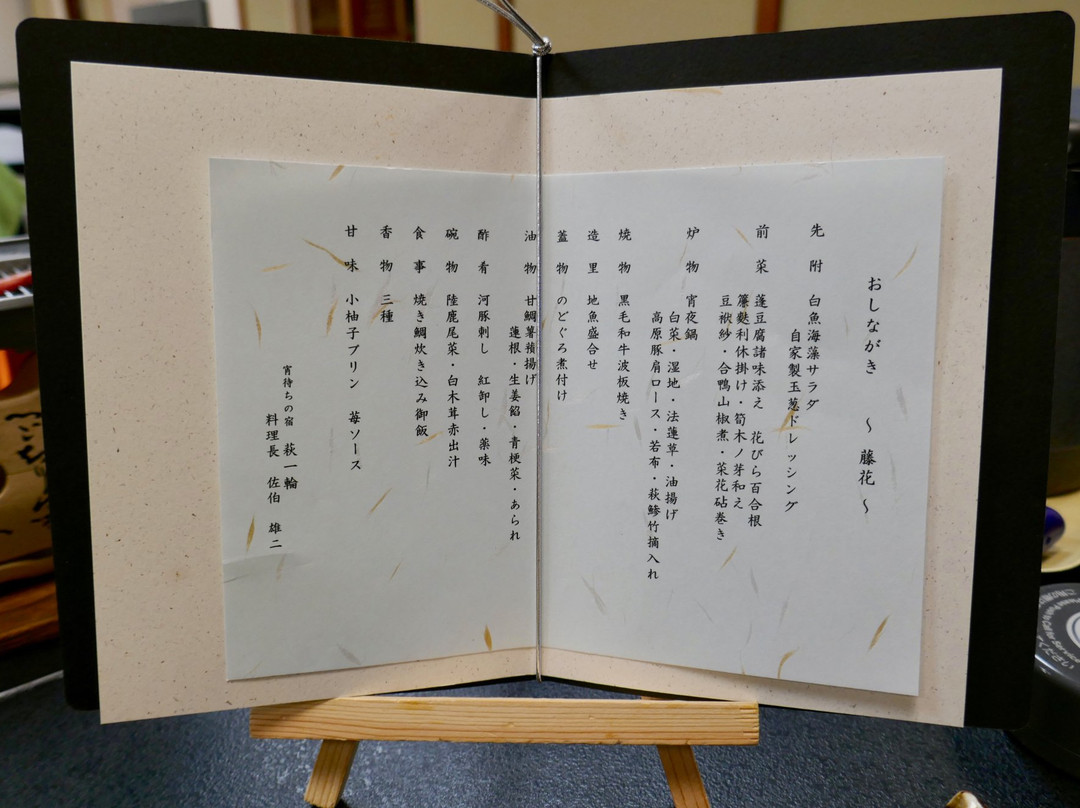 おしながき　～ 藤花 ～
先附　白魚海藻サラダ
自家製玉葱ドレッシング
前菜　蓬豆腐諸味添え　花びら百合根
簾麩利休掛け・筍木ノ芽和え
豆袱紗・合鴨山椒煮・菜花砧巻き
炉物　宵夜鍋
白菜・湿地・法蓮草・油揚げ
高原豚肩ロース・若布・萩鯵竹摘入れ
焼物　黒毛和牛波板焼き
造里　地魚盛合せ
蓋物　のどぐろ煮付け
油物　甘鯛薯蕷揚げ
蓮根・生姜餡・青梗菜・あられ
酢肴　河豚刺し　紅卸し・薬味
碗物　陸鹿尾菜・白木茸赤出汁
食事　焼き鯛炊き込み御飯
香物　三種
甘味　小柚子プリン　苺ソース
宵待ちの宿　萩一輪
料理長　佐伯　雄二